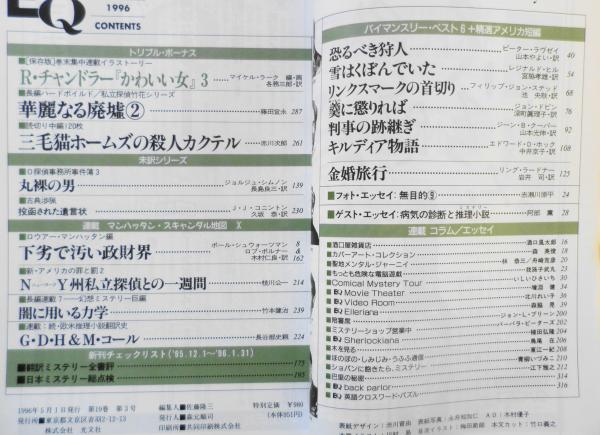 EQ
1996
CONTENTS
トリプル・ボーナス
■[保存版]巻末集中連載イラストーリー
R・チャンドラー『かわいい女』3 マイケル・ラーク 編・画
各務三郎・訳
■長編ハードボイルド/私立探偵竹花シリーズ
華麗なる廃墟② 藤田宜永 287
■読切り中編120枚
三毛猫ホームズの殺人カクテル 赤川次郎 261
未訳シリーズ
■O探偵事務所事件簿3
丸裸の男 ジョルジュ・シムノン
長島良三・訳 139
■古典渉猟
投函された遺言状 J・J・コニントン
久坂 恭・訳 230
連載 マンハッタン・スキャンダル地図 X
■ロウアー・マンハッタン編
下劣で汚い政財界 ポール・シュウォーツマン 8
ロブ・ポルナー &
木村仁良・訳 162
■新・アメリカの罪と罰2
NY州私立探偵との一週間 枝川公一 214
■長編連載7——幻想ミステリー巨編
闇に用いる力学 竹本健治 239
■連載:続・欧米推理小説翻訳史
G・D・H&M・コール 長谷部史親 224
新刊チェックリスト('95.12.1〜'96.1.31)
■翻訳ミステリー全書評 175
■日本ミステリー総点検 195
1996年5月1日発行 第19巻 第3号
発行所■東京都文京区音羽2-12-13
株式会社 光文社
編集人■佐藤隆三
発行人■森元順司
印刷所■共同印刷株式会社
特別定価 ¥980
(本体951円)
バイマンスリー・ベスト6+精選アメリカ短編
恐るべき狩人 ピーター・ラヴゼイ
山本やよい・訳 40
雪はくぼんでいた レジナルド・ヒル
宮脇孝雄・訳 54
リンクスマークの首切り フィリップ・ジョン・ステッド
池 央耿・訳 68
羹に懲りれば ジョン・ドビン
深町眞理子・訳 76
判事の跡継ぎ ジーン・B・クーパー
山本光伸・訳 92
キルディア物語 エドワード・D・ホック
中井京子・訳 108
金婚旅行 リング・ラードナー
岩井 司・訳 125
■フォト・エッセイ:無目的⑨ 吉瀬川源平 24
■ゲスト・エッセイ:病気の診断と推理小説 阿部 薫 28
ミステリー
連載 コラム/エッセイ
■酒口屋雑貨店 酒口風太郎 16
■カバーアート・コレクション 森 英俊 18
■聖地メンタル・ジャーニイ 林 恭三/舟崎克彦 20
■もっとも危険な電脳遊戯 我孫子武丸 23
■Comical Mystery Tour いしいひさいち 30
■EQ Movie Theater 増淵 健 34
■EQ Video Room 北川れい子 36
■EQ Elleriana 森脇 晃
■陪審席 ジョン・L・ブリーン 200
■ミステリーショップ営業中 バーバラ・ピーターズ 202
■EQ Sherlockiana 植田弘隆 204
■木を見る 鳥尾 在 206
■ほのぼの・しみじみ・うふふ通信 東江一紀 208
■ショパンに飽きたら、ミステリー 青柳いづみこ 210
■巴里の秘密 江下雅之 212
■back parlor 314
■EQ英語クロスワード・パズル 316